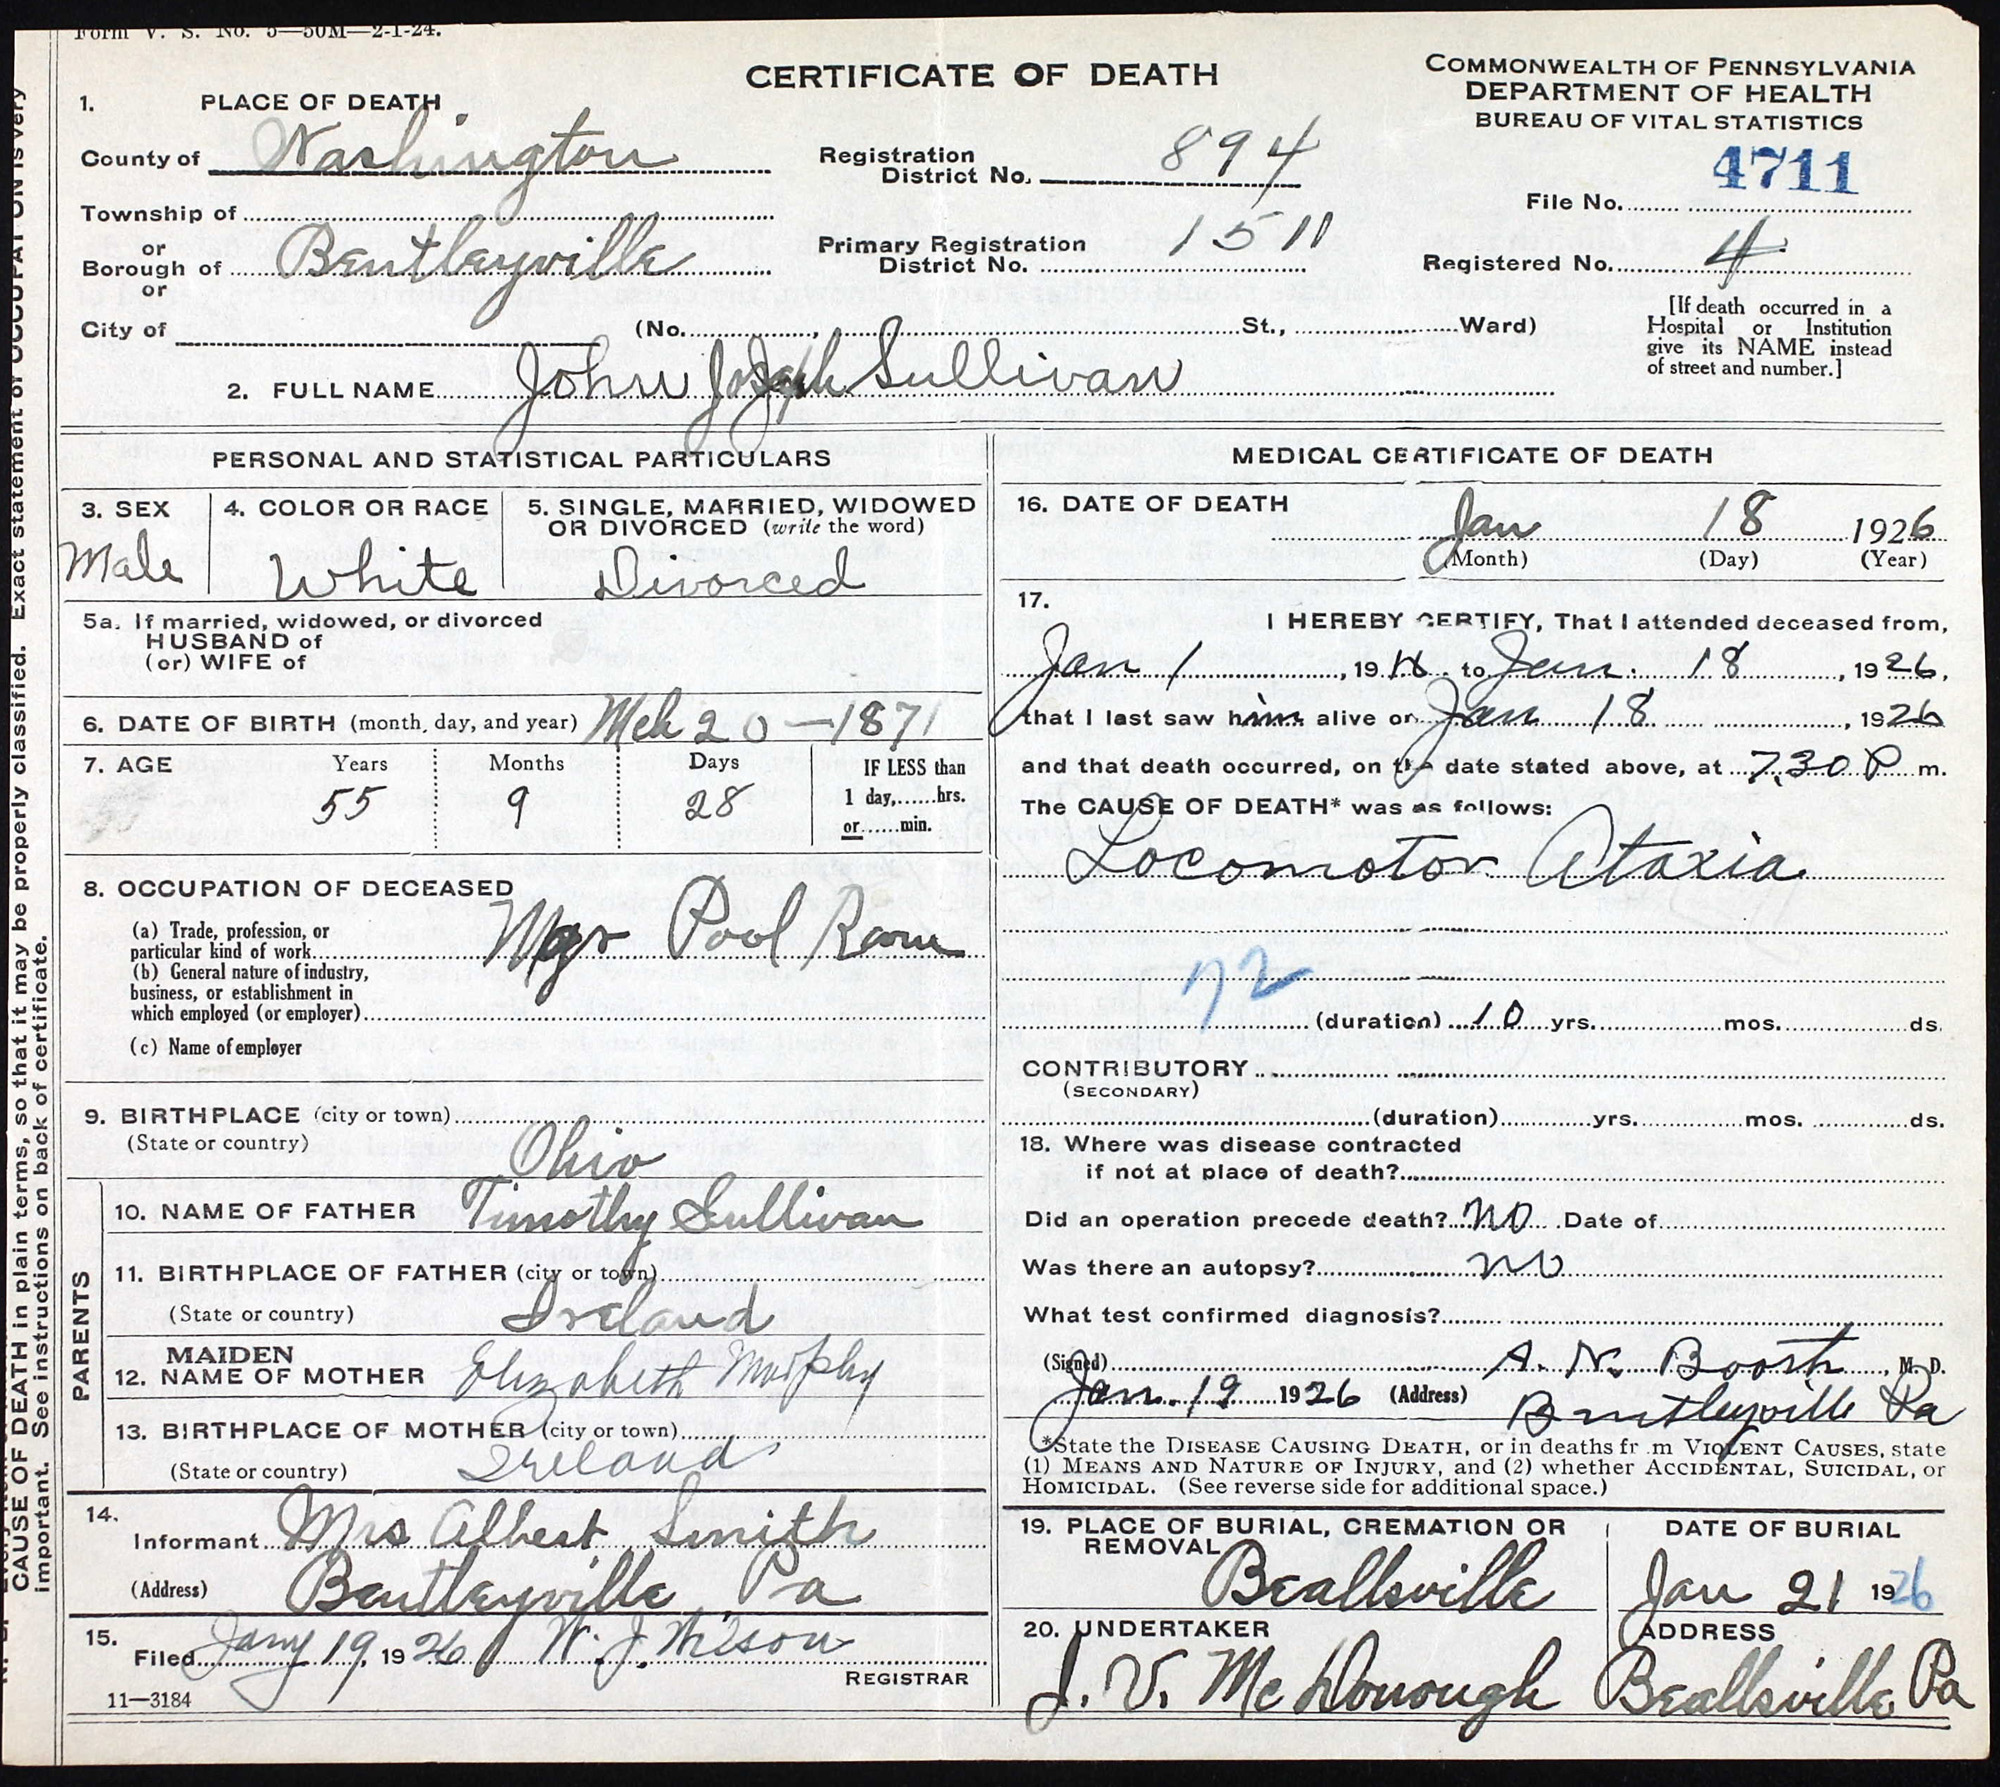 Form V. S. No. 5—50M—2-1-24.
CERTIFICATE OF DEATH
COMMONWEALTH OF PENNSYLVANIA
DEPARTMENT OF HEALTH
BUREAU OF VITAL STATISTICS
1. PLACE OF DEATH
County of Washington
Township of
or
Borough of Bentleyville
or
City of
Registration District No. 894
Primary Registration District No. 1511
4711
File No.
Registered No. 4
(No. , St., Ward)
[If death occurred in a
Hospital or Institution
give its NAME instead
of street and number.]
2. FULL NAME John Joseph Sullivan
PERSONAL AND STATISTICAL PARTICULARS
3. SEX
Male
4. COLOR OR RACE
White
5. SINGLE, MARRIED, WIDOWED
OR DIVORCED (write the word)
Divorced
5a. If married, widowed, or divorced
HUSBAND of
(or) WIFE of
6. DATE OF BIRTH (month, day, and year) Mch 20—1871
7. AGE
Years Months Days
55 9 28
IF LESS than
1 day,......hrs.
or......min.
8. OCCUPATION OF DECEASED
(a) Trade, profession, or
particular kind of work Mgr Pool Room
(b) General nature of industry,
business, or establishment in
which employed (or employer)
(c) Name of employer
9. BIRTHPLACE (city or town)
(State or country) Ohio
PARENTS
10. NAME OF FATHER Timothy Sullivan
11. BIRTHPLACE OF FATHER (city or town)
(State or country) Ireland
MAIDEN
12. NAME OF MOTHER Elizabeth Morphy
13. BIRTHPLACE OF MOTHER (city or town)
(State or country) Ireland
14.
Informant Mrs Albert Smith
(Address) Bentleyville Pa
15.
Filed Jany 19, 1926 W. J. Wilson
REGISTRAR
11—3184
MEDICAL CERTIFICATE OF DEATH
16. DATE OF DEATH
Jan 18 1926
(Month) (Day) (Year)
17.
I HEREBY CERTIFY, That I attended deceased from,
Jan 1, 19 to Jan. 18, 1926,
that I last saw him alive on Jan 18, 1926
and that death occurred, on the date stated above, at 7.30 P m.
The CAUSE OF DEATH* was as follows:
Locomotor Ataxia
72
(duration) 10 yrs. mos. ds.
CONTRIBUTORY
(SECONDARY)
(duration) yrs. mos. ds.
18. Where was disease contracted
if not at place of death?
Did an operation precede death? no Date of
Was there an autopsy? no
What test confirmed diagnosis?
(Signed) A. N. Booth, M. D.
Jan. 19 1926 (Address) Bentleyville Pa
*State the DISEASE CAUSING DEATH, or in deaths fr m VIOLENT CAUSES, state
(1) MEANS AND NATURE OF INJURY, and (2) whether ACCIDENTAL, SUICIDAL, or
HOMICIDAL. (See reverse side for additional space.)
19. PLACE OF BURIAL, CREMATION OR
REMOVAL
Beallsville
DATE OF BURIAL
Jan 21 1926
20. UNDERTAKER
J. V. McDonough
ADDRESS
Beallsville Pa
CAUSE OF DEATH in plain terms, so that it may be properly classified. Exact statement of OCCUPATION is very
important. See instructions on back of certificate.